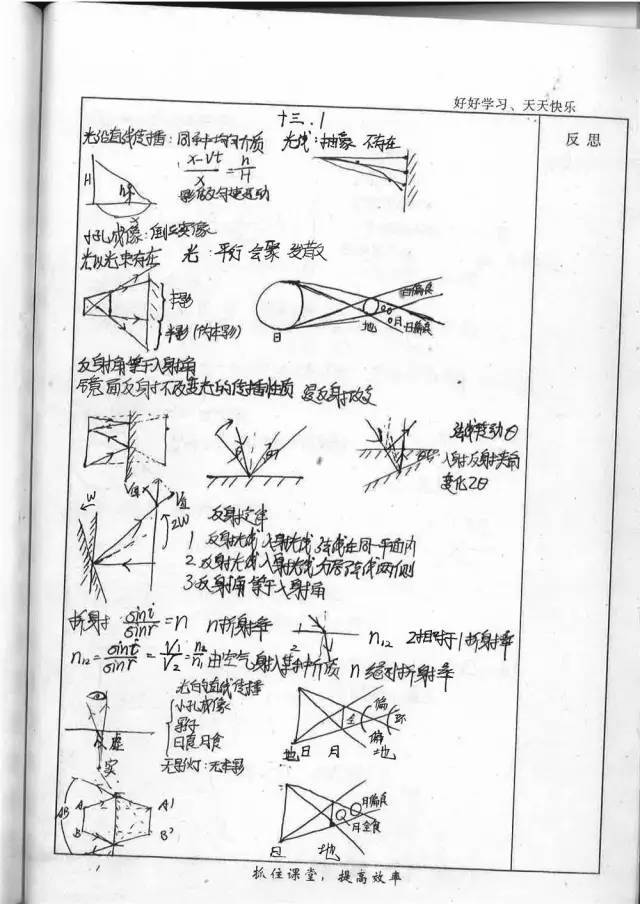 好好学习、天天快乐
反思
十三.1
光沿直线传播:同种均匀介质 光线:抽象 不存在
H h
x-vt/x = h/H
影做匀速运动
小孔成像:倒立实像
光以光束存在 光 平行 会聚 发散
半影
半影(伪本影)
日 地 月 日偏食
日偏食
反射角等于入射角
镜面反射不改变光的传播性质 漫反射改变
法线转动θ
入射反射夹角
变化2θ
W
2W
反射定律
1 反射光线 入射光线 法线在同一平面内
2 反射光线 入射光线分居法线两侧
3 反射角等于入射角
折射: sini/sinr = n n折射率
1
2
n12 2相对于1折射率
n12 = sini/sinr = V1/V2 = n2/n1 由空气射入某种介质 n 绝对折射率
光的直线传播
小孔成像
影子
日食月食
无影灯:无本影
虚
实
偏
全 环
偏
日 月 地
AB A A'
B B'
月偏食
月全食
日 地
抓住课堂,提高效率